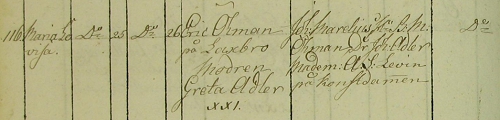 116 Maria Lo
visa.
Do
25
Do
26 Eric Öhman
på Laxbro
Modren
Greta Adler
XXI.
Joh: Marelius, Hr B.M.
Öhman Dr Joh Adler
Madem: A.S. Levin
på Konstdamen
Do